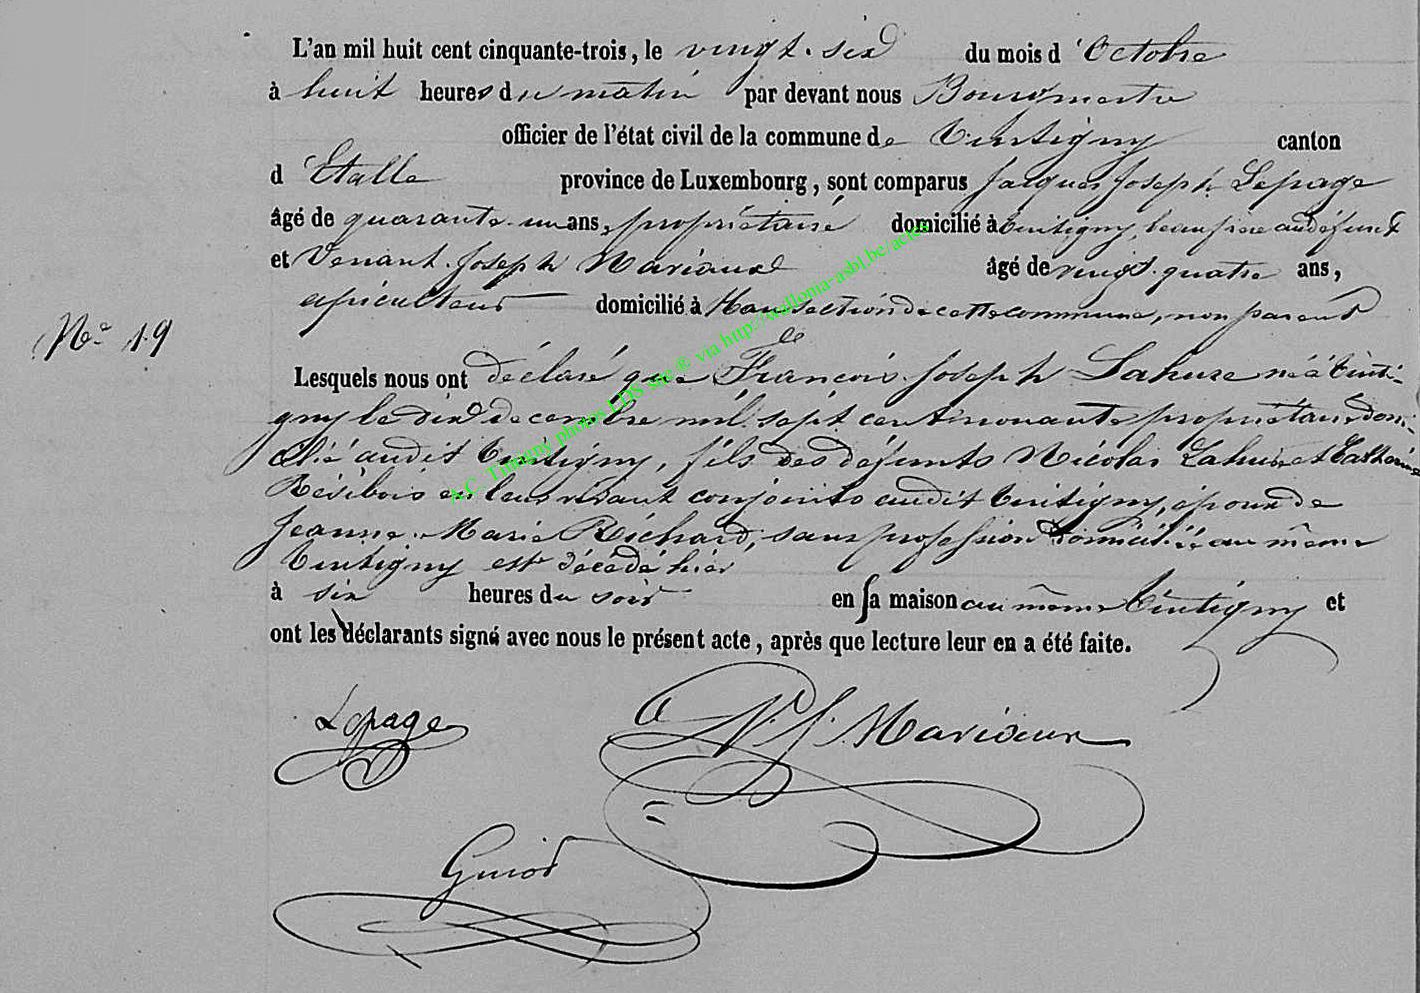 L'an mil huit cent cinquante-trois, le vingt-six du mois d'Octobre
à huit heures du matin par devant nous Bourgmestre
officier de l'état civil de la commune de Tintigny canton
d'Etalle province de Luxembourg, sont comparus Jacques Joseph Lepage
âgé de quarante-un ans, propriétaire domicilié à Tintigny, beau frère au défunt
et Venant Joseph Mariaux âgé de vingt-quatre ans,
domicilié à Han section de cette commune, non parent
No 19
Lesquels nous ont déclaré que François Joseph Lahure né à Tinti-
gny le dix décembre mil sept cent nonante propriétaire domi-
cilié audit Tintigny, fils des défunts Nicolas Lahure et Catherine
en leur vivant conjoints audit Tintigny, époux de
Jeanne Marie Richard, sans profession domiciliée au même
Tintigny est décédé hier
à six heures du soir en sa maison au même Tintigny et
ont les déclarants signé avec nous le présent acte, après que lecture leur en a été faite.
Lepage
V. J. Mariaux
Guiot
A.C. Tintigny photos LDS site © via http://wallonia-asbl.be/actes